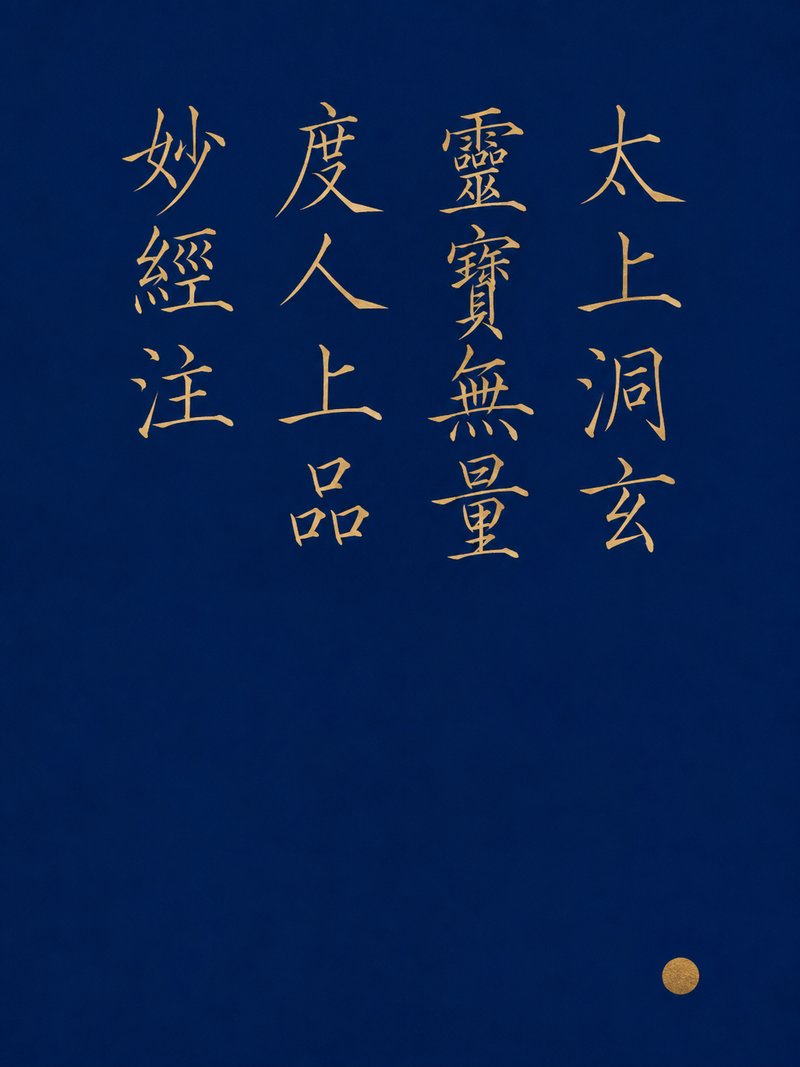 太上洞玄
靈寶無量
度人上品
妙經注